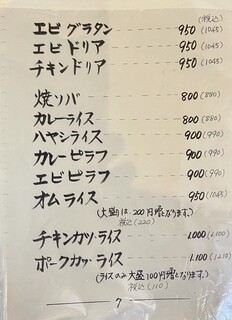 (税込)
エビグラタン 950 (1045)
エビドリア 950 (1045)
チキンドリア 950 (1045)
焼ソバ 800 (880)
カレーライス 800 (880)
ハヤシライス 900 (990)
カレーピラフ 900 (990)
エビピラフ 900 (990)
オムライス 950 (1045)
(大盛りは、200円増となります。)
税込(220)
チキンカツ・ライス 1.000 (1.100)
ポークカツ・ライス 1.100 (1.210)
(ライスのみ大盛100円増となります。)
税込(110)
7